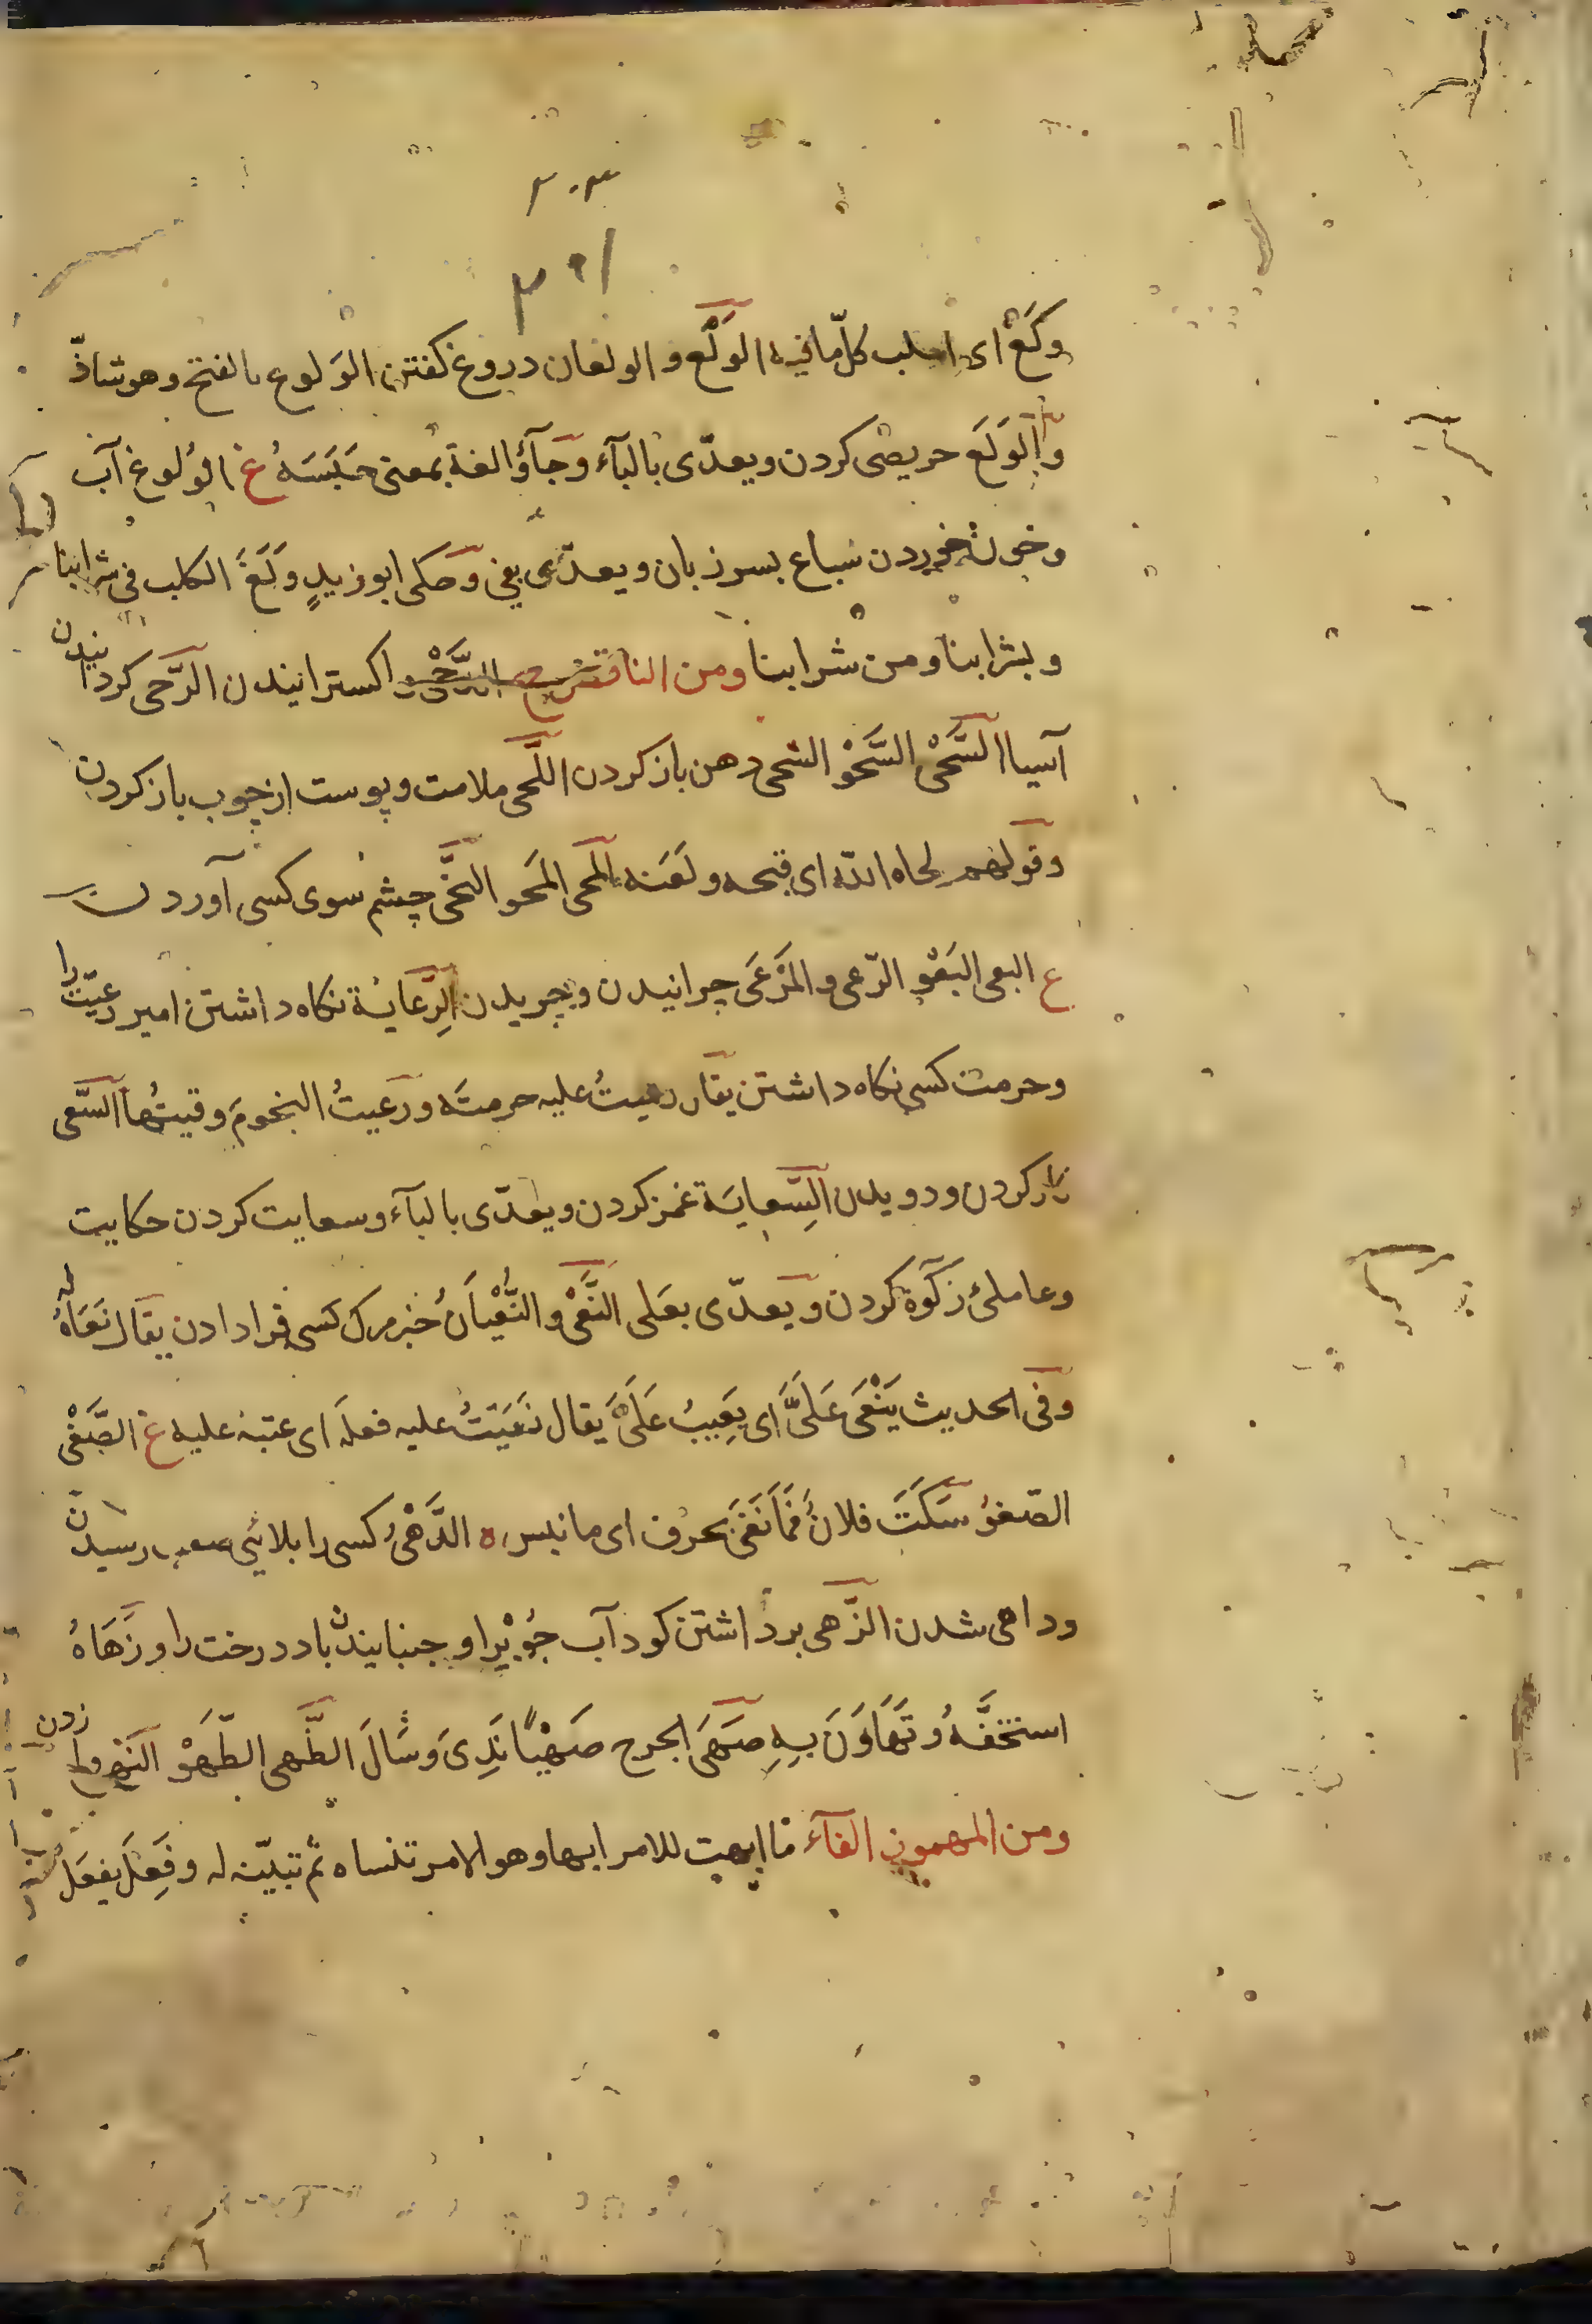 وكَعْ ای احلب كلّ ما فیه الوَلْع والولعان دروغ كفتن الوَلوع بالفتح وهو شاذّ
والوَلَعَ حریصی كردن ویعدّی بالبآء وجآؤا لغة بمعنی حَبَسَهُ غ الوُلوغ آب
وخون خوردن سباع بسر زبان ویعدّی بفی وحكی ابو زیدٍ وَلَغَ الكلب فی شرابنا
وبشرابنا ومن شرابنا ومن الناقص ح الدَّحْو اكسترانیدن الرَّحی كردانیدن
آسیا السَّحْی السَّحْو الشحی دهن باز كردن اللَّحی ملامت وپوست از چوب باز كردن
وقولهم لحاه الله ای قبحه ولعنه المَحی المَحو النخَّی چشم سوی كسی آوردن
ع البعی البَعْو الرّعی والمَرْعَی چرانیدن وچریدن الرِّعایة نكاه داشتن امیر رعیّت را
وحرمت كسی نكاه داشتن یقال رعیتُ علیه حرمتَه ورَعیتُ النجومَ وقیتُها السَّعی
كار كردن ودویدن السِّعایَة غمز كردن ویعدّی بالبآء وسعایت كردن حكایت
وعاملئ زكوة كردن ویعدّی بعَلی النَّعْی والنُّعْیانُ خبر مرك كسی فرا دادن یقال نعَاهُ له
وفی الحدیث یَنْعَی عَلَیَّ ای یَعِیبُ عَلَیَّ یقال نَعَیَتُ علیه فعلَه ای عتبته علیه غ الصَّغْی
الصّغوُ سَكَتَ فلانٌ فَمَا نَغَی بحرف ای ما نبس ه الدَّهْیُ كسی را بلائی صعب رسیدن
وداهی شدن الزَّهی برداشتن كود آب جُوْیْرا وجنبانیدنْ باد درخت را وزَهَاهُ
استخفَّهُ وتَهَاوَنَ بِهِ صَهَی الجرح صَهْیًا نَدِیَ وسَالَ الطَّهی الطَّهَوْ النهو زدن
ومن المهموز الفآء ما ابهت للامر ابها وهو الامر تنساه ثم تبیّنه له وفَعِلَ یفعَل